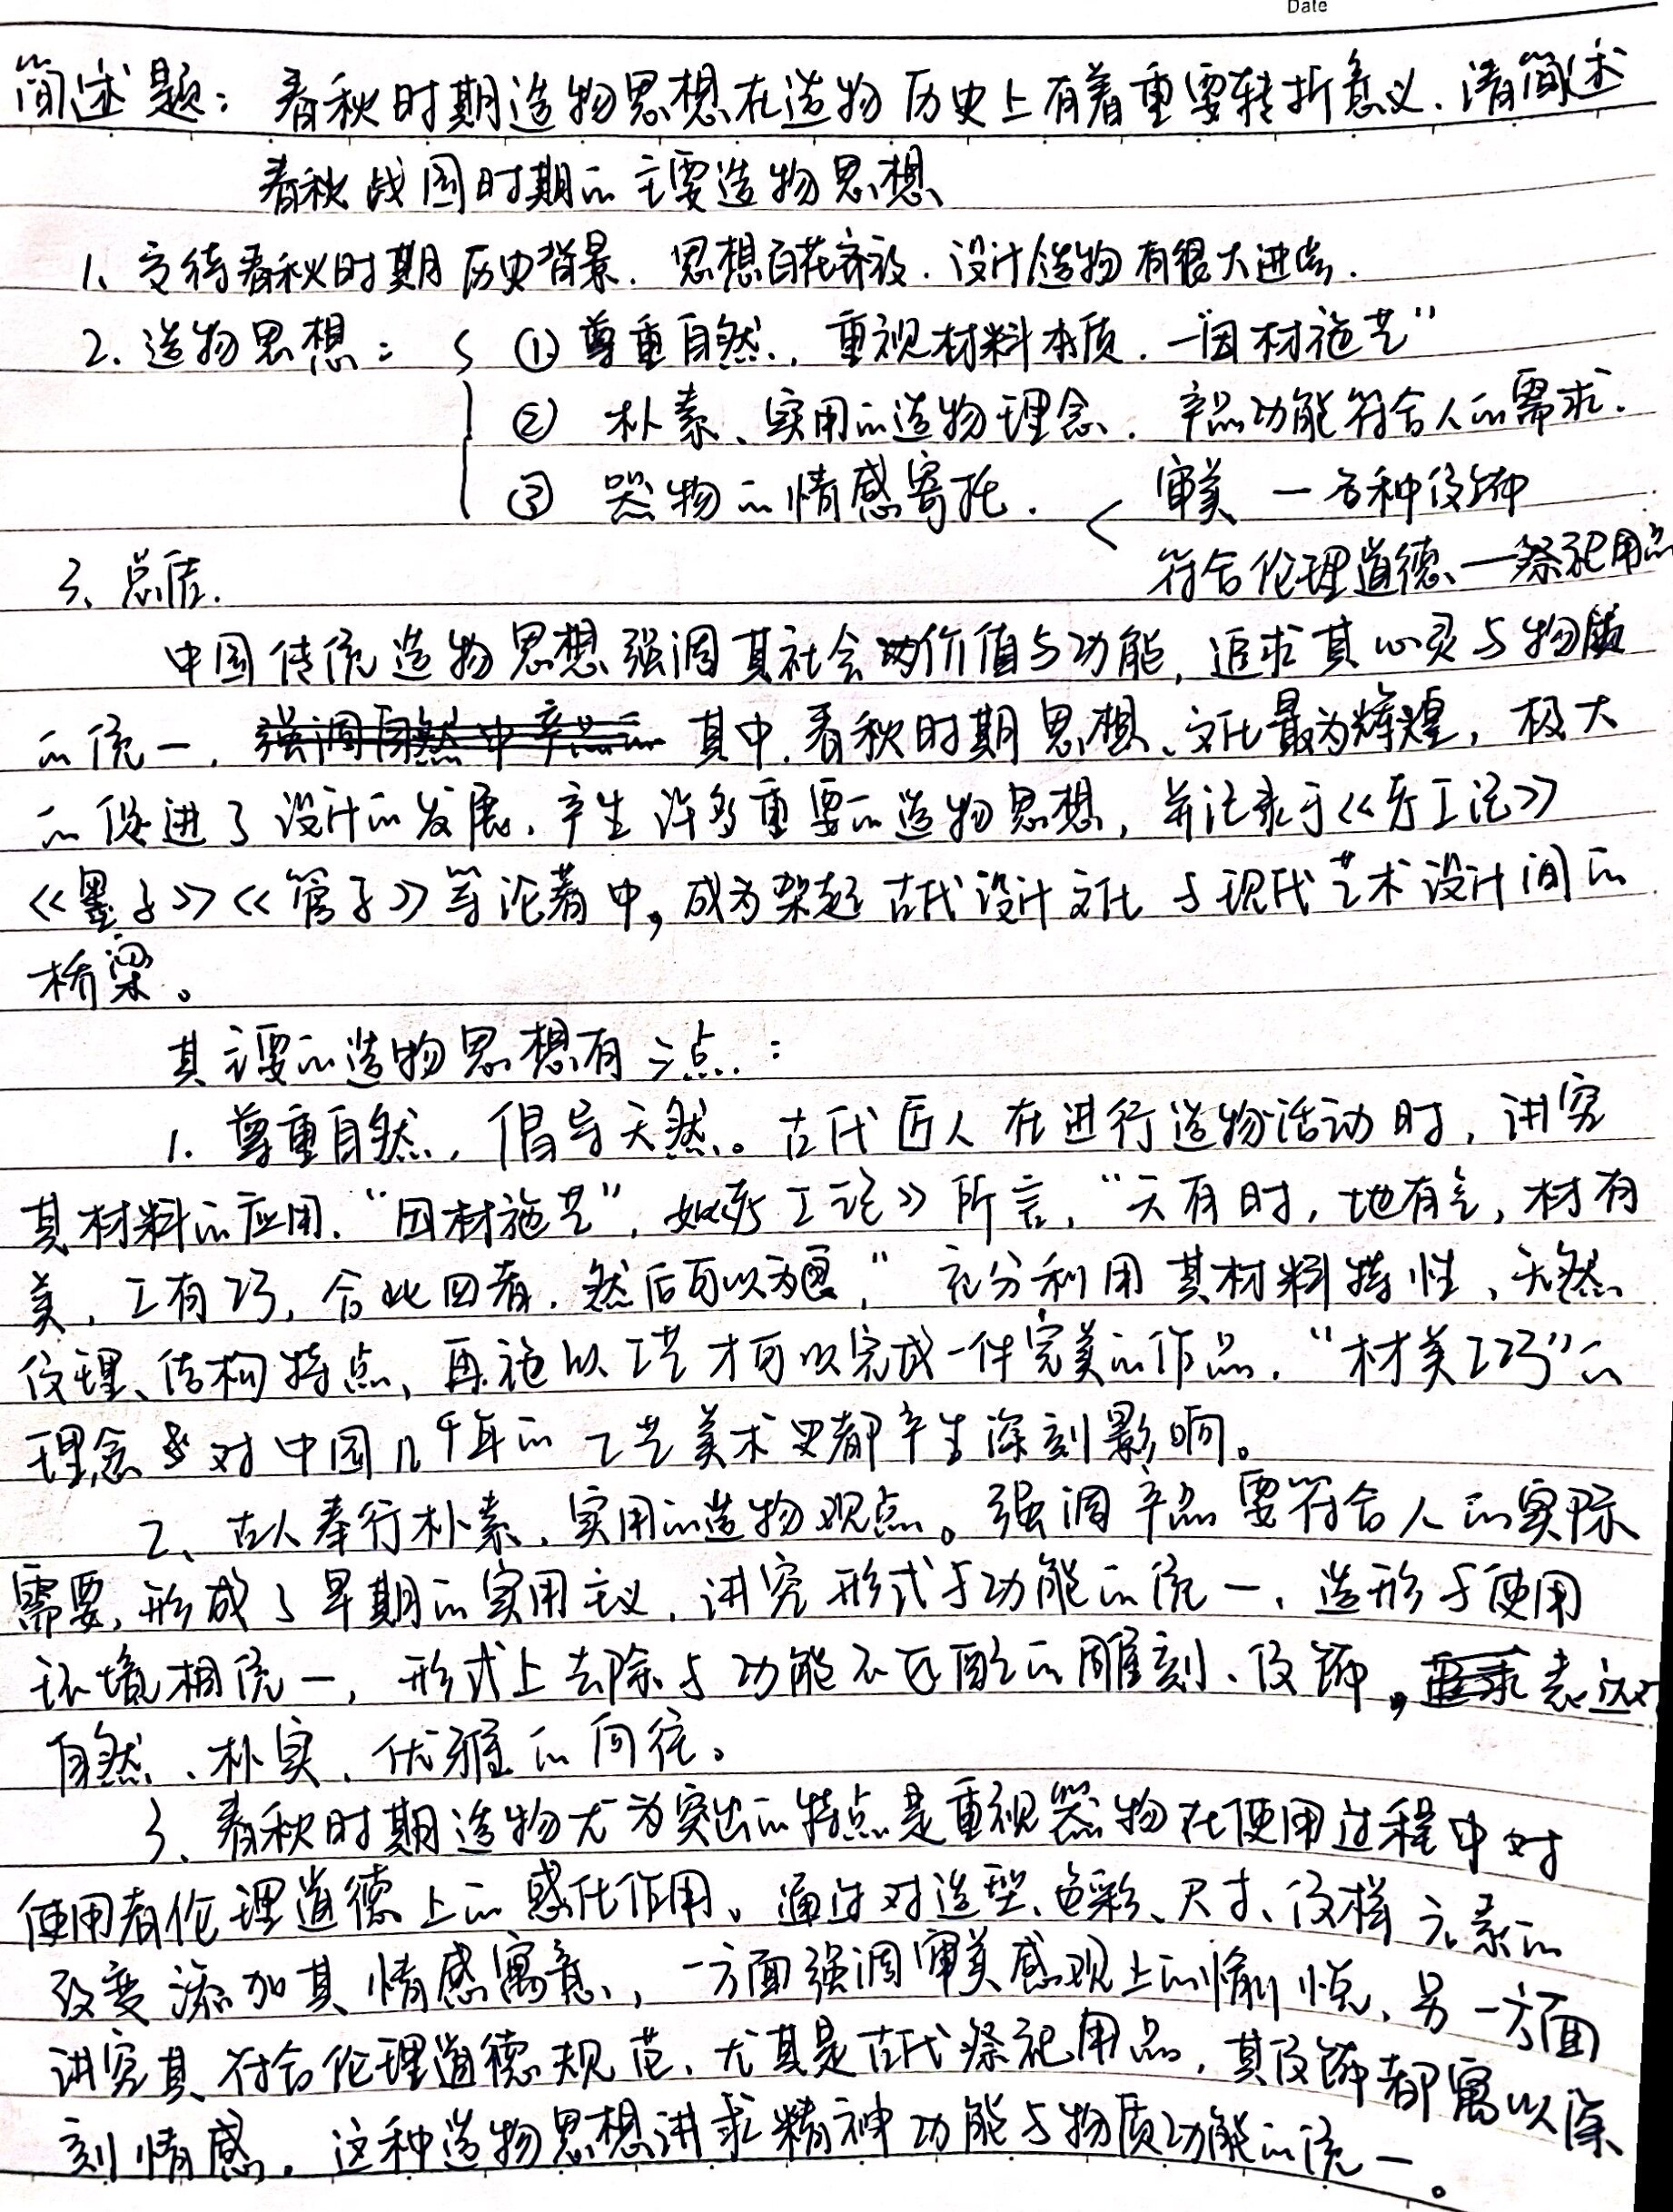 Date
简述题：春秋时期造物思想在造物历史上有着重要转折意义．请简述
春秋战国时期的主要造物思想
1、交待春秋时期历史背景．思想百花齐放．设计造物有很大进步．
2. 造物思想：{ ① 尊重自然．重视材料本质．—"因材施艺"
② 朴素、实用的造物理念．产品功能符合人的需求．
③ 器物的情感寄托． < 审美 — 各种纹饰
符合伦理道德 — 祭祀用品
3、总结．
中国传统造物思想强调其社会价值与功能，追求其心灵与物质
的统一．其中．春秋时期思想、文化最为辉煌，极大
的促进了设计的发展．产生许多重要的造物思想，并记录于《考工记》
《墨子》《管子》等论著中，成为架起古代设计文化与现代艺术设计间的
桥梁。
其主要的造物思想有三点：
1. 尊重自然，倡导天然。古代匠人在进行造物活动时，讲究
其材料的应用．"因材施艺"，如考工记》所言，"天有时，地有气，材有
美，工有巧，合此四者．然后可以为良，"充分利用其材料特性、天然
纹理、结构特点、再施以工艺才可以完成一件完美的作品．"材美工巧"的
理念对中国几千年的工艺美术史都产生深刻影响。
2、古人奉行朴素、实用的造物观点。强调产品要符合人的实际
需要，形成了早期的实用主义．讲究形式与功能的统一、造形与使用
环境相统一，形式上去除与功能不匹配的雕刻、纹饰，表达对
自然、朴实、优雅的向往。
3、春秋时期造物尤为突出的特点是重视器物在使用过程中对
使用者伦理道德上的感化作用。通过对造型、色彩、尺寸、纹样元素的
改变添加其情感寓意，一方面强调审美感观上的愉悦、另一方面
讲究其符合伦理道德规范．尤其是古代祭祀用品，其纹饰都寓以深
刻情感．这种造物思想讲求精神功能与物质功能的统一。